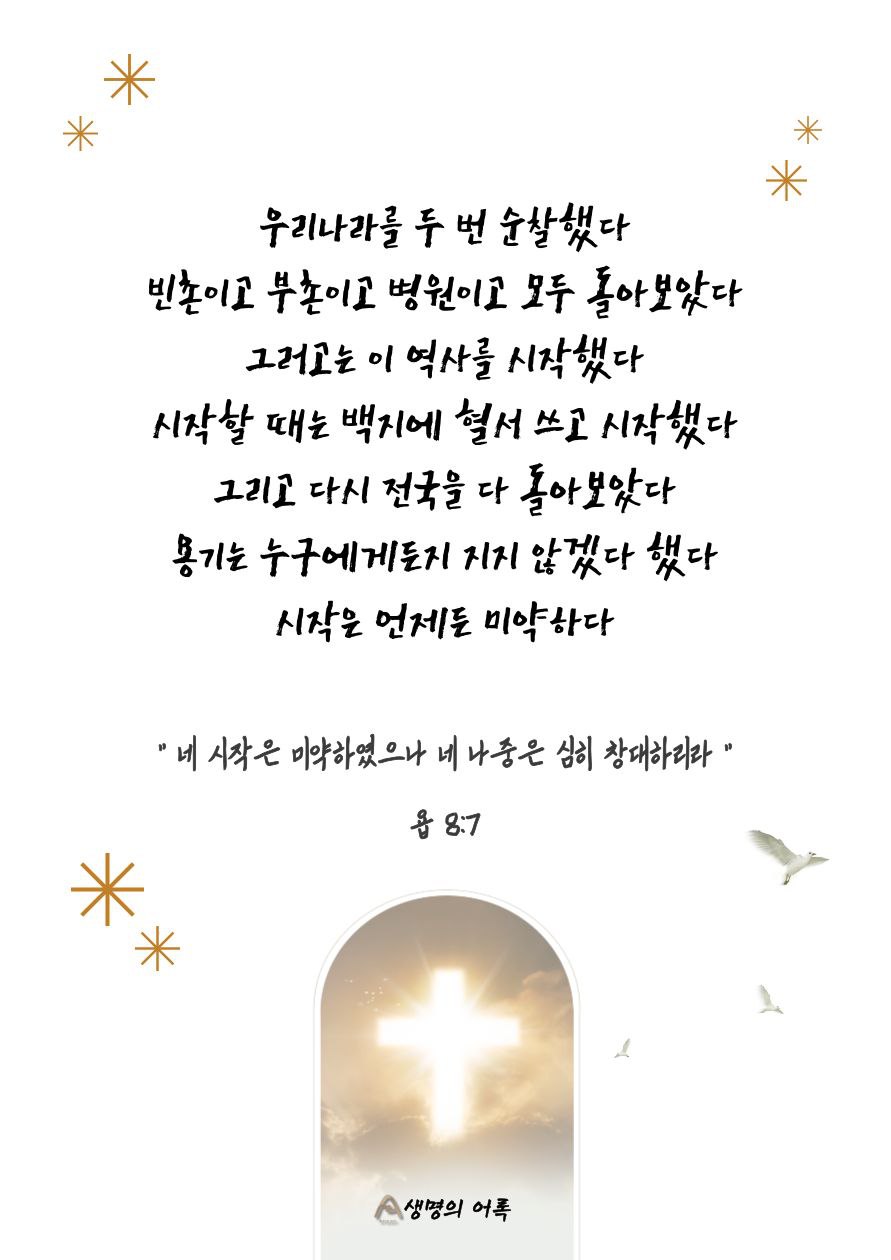 우리나라를 두 번 순찰했다
빈촌이고 부촌이고 병원이고 모두 돌아보았다
그러고는 이 역사를 시작했다
시작할 때는 백지에 혈서 쓰고 시작했다
그리고 다시 전국을 다 돌아보았다
용기는 누구에게든지 지지 않겠다 했다
시작은 언제든 미약하다
" 네 시작은 미약하였으나 네 나중은 심히 창대하리라 "
욥 8:7
생명의 어록